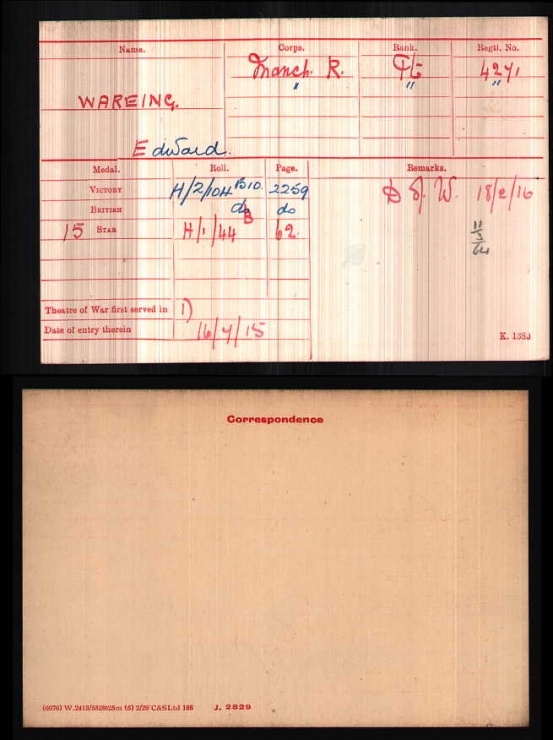 Name. Corps. Rank. Regtl. No.
Manch. R. Pte 4271
WAREING. " " "
Edward.
Medal. Roll. Page. Remarks.
VICTORY H/2/104 B10. 2259 D of W. 18/2/16
BRITISH do do
15 STAR H/1/44 B 62.
Theatre of War first served in 1)
Date of entry therein 16/7/15
K. 1380
Correspondence
(6976) W.2413/5528 25m (5) 2/20 CAS Ltd 166 J. 2829